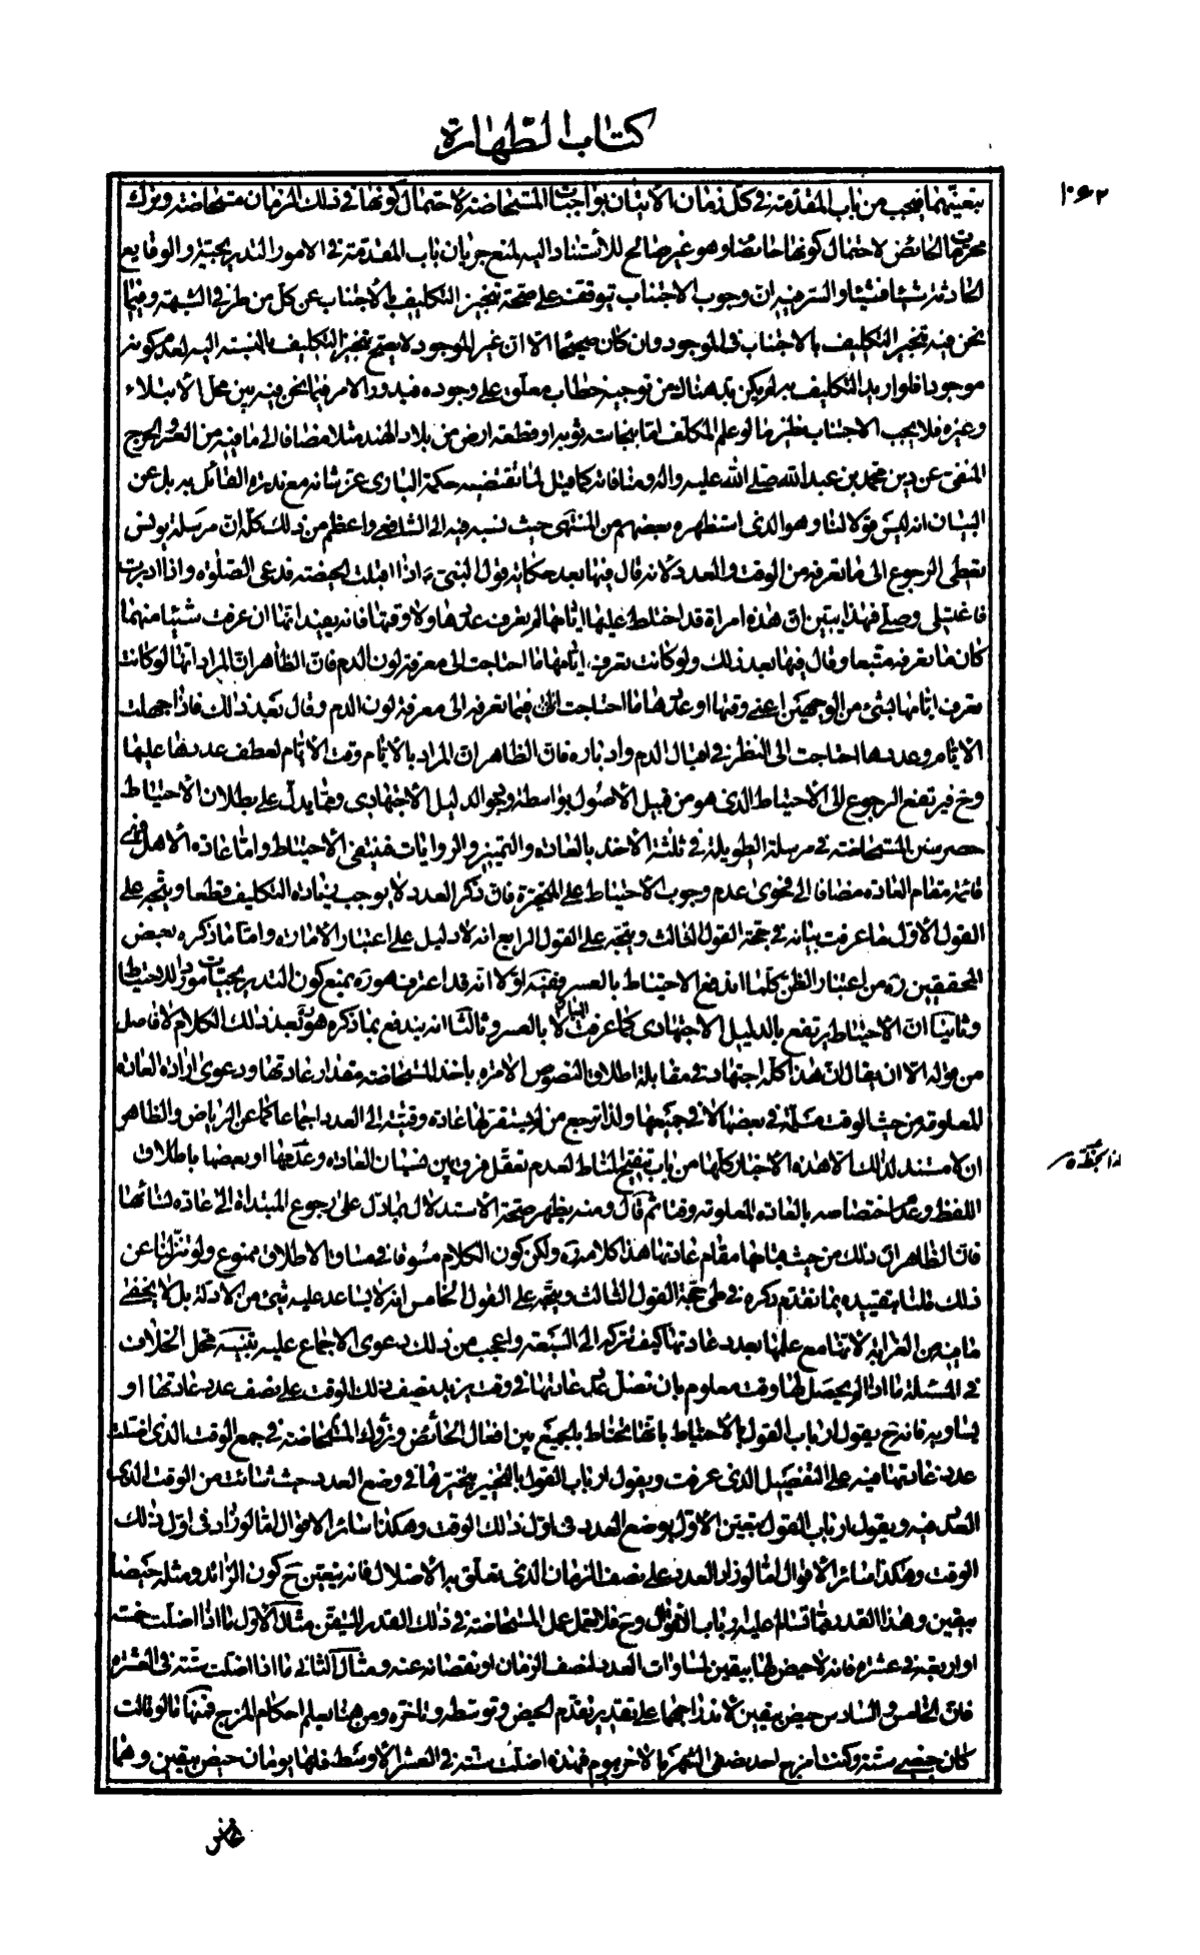 كتاب الطهارة
١٠٦٢
بتعيينهما فيجب من باب المقدمة في كل زمان الاتيان بواجبات المستحاضة لاحتمال كونها في ذلك الزمان مستحاضة وترك
محرمات الحائض لاحتمال كونها حائضا وهو غير صالح للاستناد اليه لمنع جريان باب المقدمة في الامور التدريجية والوقايع
الحادثة شيئا فشيئا والسر فيه ان وجوب الاجتناب يتوقف على صحة تنجيز التكليف بالاجتناب عن كل من طرفي الشبهة وفيما
نحن فيه تنجيز التكليف بالاجتناب في الموجود وان كان صحيحا الا ان غير الموجود لا يصح تنجيز التكليف بالنسبة اليه لعدم كونه
موجودا فلو اريد التكليف به لم يكن بد هناك من توجيه خطاب معلق على وجوده فيدور الامر فيما نحن فيه بين محل الابتلاء
وغيره فلا يجب الاجتناب نظير ما لو علم المكلف اما بنجاسة ثوبه او قطعة ارض من بلاد الهند مثلا مضافا الى ما فيه من العسر والحرج
المنفي عن دين محمد بن عبد الله صلى الله عليه واله ومنافاته كما قيل لما تقتضيه حكمة الباري عز شانه مع ندرة القائل به بل عن
البيان انه ليس قولا لنا وهو الذي استظهره بعضهم من المنتهى حيث نسبه فيه الى الشافعي واعظم من ذلك كله ان مرسلة يونس
تعطى الرجوع الى ما تعرفه من الوقت والعدد لانه قال فيها بعد حكاية قول النبي ص اذا اقبلت الحيضة فدعى الصلوة واذا ادبرت
فاغتسلي وصلي فهذا يبين ان هذه امراة قد اختلط عليها ايامها لم تعرف عددها ولا وقتها فانه يفيد انها ان عرفت شيئا منهما
كان ما تعرفه متبعا وقال فيها بعد ذلك ولو كانت تعرف ايامها ما احتاجت الى معرفة لون الدم فان الظاهر ان المراد انها لو كانت
تعرف ايامها لبشيء من الوجهين اعني وقتها او عددها ما احتاجت فيما تعرفه الى معرفة لون الدم وقال بعد ذلك فاذا جهلت
الايام وعددها احتاجت الى النظر في اقبال الدم وادباره فان الظاهر ان المراد بالايام وقت الايام لعطف عددها عليها
وح فيرتفع الرجوع الى الاحتياط الذي هو من قبيل الاصول بواسطة وجود الدليل الاجتهادي ومما يدل على بطلان الاحتياط
حصر سنن المستحاضة في مرسلة الطويلة في ثلثة الاخذ بالعادة والتميز والروايات فينتفي الاحتياط واما عادة الاهل فهي
قائمة مقام العادة مضافا الى فحوى عدم وجوب الاحتياط على المتحيرة فان ذكر العدد لا يوجب زيادة التكليف قطعا ويتجه على
القول الاول ما عرفت بيانه في حجة القول الثالث ويتجه على القول الرابع انه لا دليل على اعتبار الامارة واما ما ذكره بعض
المحققين ره من اعتبار الظن كلما اندفع الاحتياط بالعسر ففيه اولا انه قد اعترف هو ره بمنع كون التدريجيات مورد الاحتياط
وثانيا ان الاحتياط يرتفع بالدليل الاجتهادي كما عرفت لا بالعسر وثالثا انه يندفع بما ذكره هو ره بعد ذلك الكلام لا فاصل
من قوله الا ان يقال ان هذا كله اجتهاد في مقابلة اطلاق النصوص الامرة باخذ المستحاضة مقدار عادتها ودعوى ارادة العادة
المعلومة من حيث الوقت مسلمة في بعضها لا في جميعها ولذا ترجع من لم يستقر لها عادة وقتية الى العدد اجماعا كما عن الرياض والظاهر
ان لا مستند لذلك الا هذه الاخبار كلها من باب تنقيح المناط لعدم تعقل فرق بين نسيان العادة وعدمها او بعضها باطلاق
اللفظ وعدم اختصاصه بالعادة المعلومة وقتا ثم قال ومنه يظهر صحة الاستدلال بما دل على رجوع المبتداة الى عادة نسائها
فان الظاهر ان ذلك من حيث قيامها مقام عادتها هذا كلامه ره ولكن كون الكلام مسوقا في مساق الاطلاق ممنوع ولو تنزلنا عن
ذلك قلنا بتقييده بما تقدم ذكره في طي حجة القول الثالث ويتجه على القول الخامس انه لا يساعد عليه شيء من الادلة بل لا يخفى
ما فيه من الغرابة لانها مع علمها بعدد عادتها كيف تتركه الى السبعة واعجب من ذلك دعوى الاجماع عليه تنبيه محل الخلاف
في المسئلة ما اذا لم يحصل لها وقت معلوم بان تضل عدد عادتها في وقت يزيد نصف ذلك الوقت على نصف عدد عادتها او
يساويه فانه ح يقول ارباب القول بالاحتياط بانها تحتاط بالجمع بين افعال الحائض وتروك المستحاضة في جمع الوقت الذي اضلت
عدد عادتها فيه على التفصيل الذي عرفت ويقول ارباب القول بالتخيير بتخيرها في وضع العدد حيث شائت من الوقت الذي
العدد فيه ويقول ارباب القول بتعين الاول بوضع العدد في اول ذلك الوقت وهكذا سائر الاقوال اما لو زاد في اول ذلك
الوقت وهكذا سائر الاقوال اما لو زاد العدد على نصف الزمان الذي تعلق به الاضلال فانه يتعين ح كون الزائد ومثله حيضا
بيقين وهذا القدر مما تسالم عليه ارباب الاقوال وح فلا تعمل عمل المستحاضة في ذلك القدر المتيقن مثال الاول ما اذا اضلت خمسة
او اربعة في عشرة فانه لا حيض لها بيقين لمساوات العدد لنصف الزمان او نقصانه عنه ومثال الثاني ما اذا اضلت ستة في العشرة
فان الخامس والسادس حيض بيقين لاندراجهما على تقدير تقدم الحيض وتوسطه وتاخره ومن هنا يعلم احكام المزج فمنها ما لو قالت
كان حيضي ستة وكنت امزج احد نصفي الشهر بالاخر بيوم فهذه اضلت ستة في العشر الاوسط فلها يومان حيض بيقين وهما